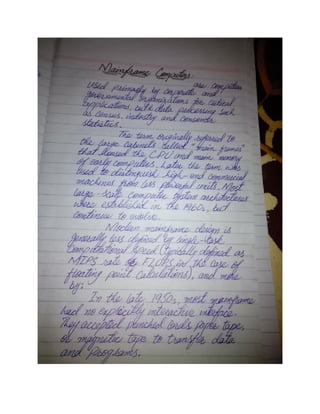 Mainframe Computers
are computers
used primarily by corporate and
governmental organizations for critical
applications, bulk data processing such
as census, industry and consumer
statistics.
The term originally referred to
the large cabinets called "main frames"
that housed the CPU and main memory
of early computers. Later, the term was
used to distinguish high-end commercial
machines from less powerful units. Most
large-scale computer system architectures
were established in the 1960s, but
continue to evolve.
Modern mainframe design is
generally less defined by single-task
computational speed (typically defined as
MIPS rate or FLOPS in the case of
floating point calculations), and more
by:
In the late 1950s, most mainframe
had no explicitly interactive interface.
They accepted punched cards, paper tape,
or magnetic tape to transfer data
and programs.